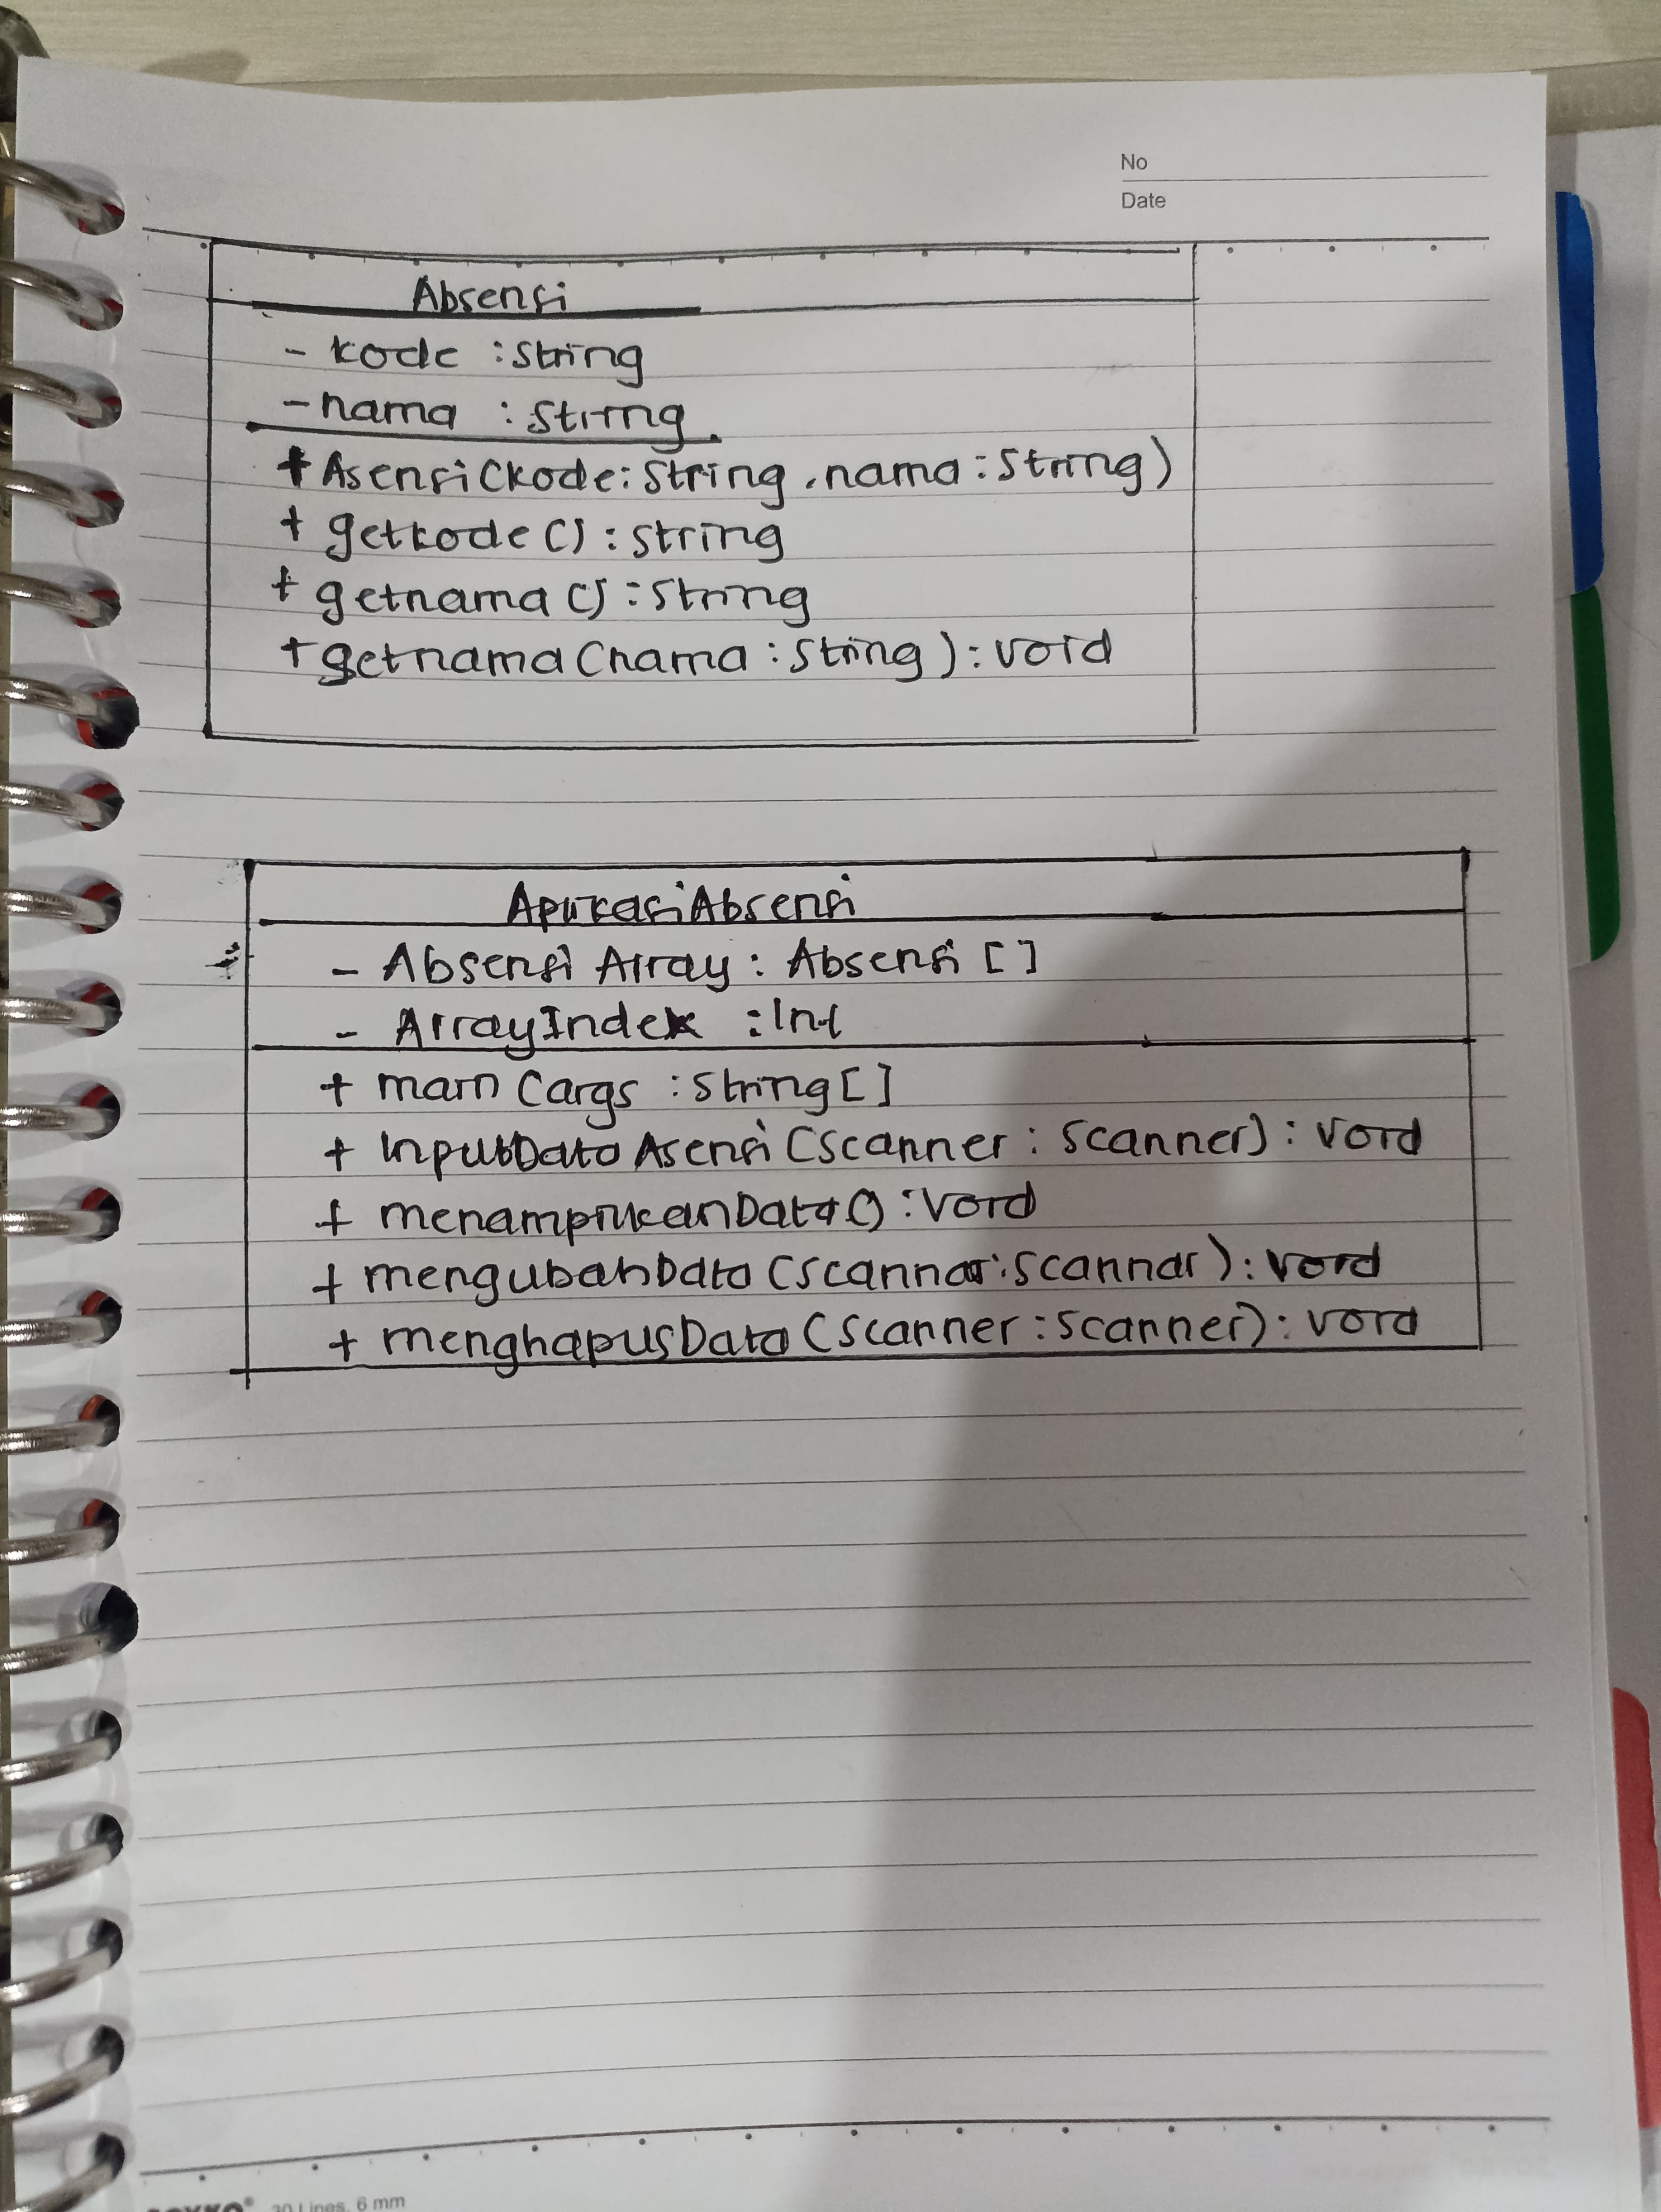 No
Date
Absensi
- kode : String
- nama : String
+ Asensi (kode : String, nama : String)
+ getkode () : String
+ getnama () : String
+ getnama (nama : String) : void
AplikasiAbsensi
- Absensi Array : Absensi []
- ArrayIndex : Int
+ main (args : String []
+ InputData Asensi (scanner : Scanner) : void
+ menampilkanData () : void
+ mengubahData (scannar : scannar) : void
+ menghapusData (scanner : scanner) : void
30 Lines, 6 mm